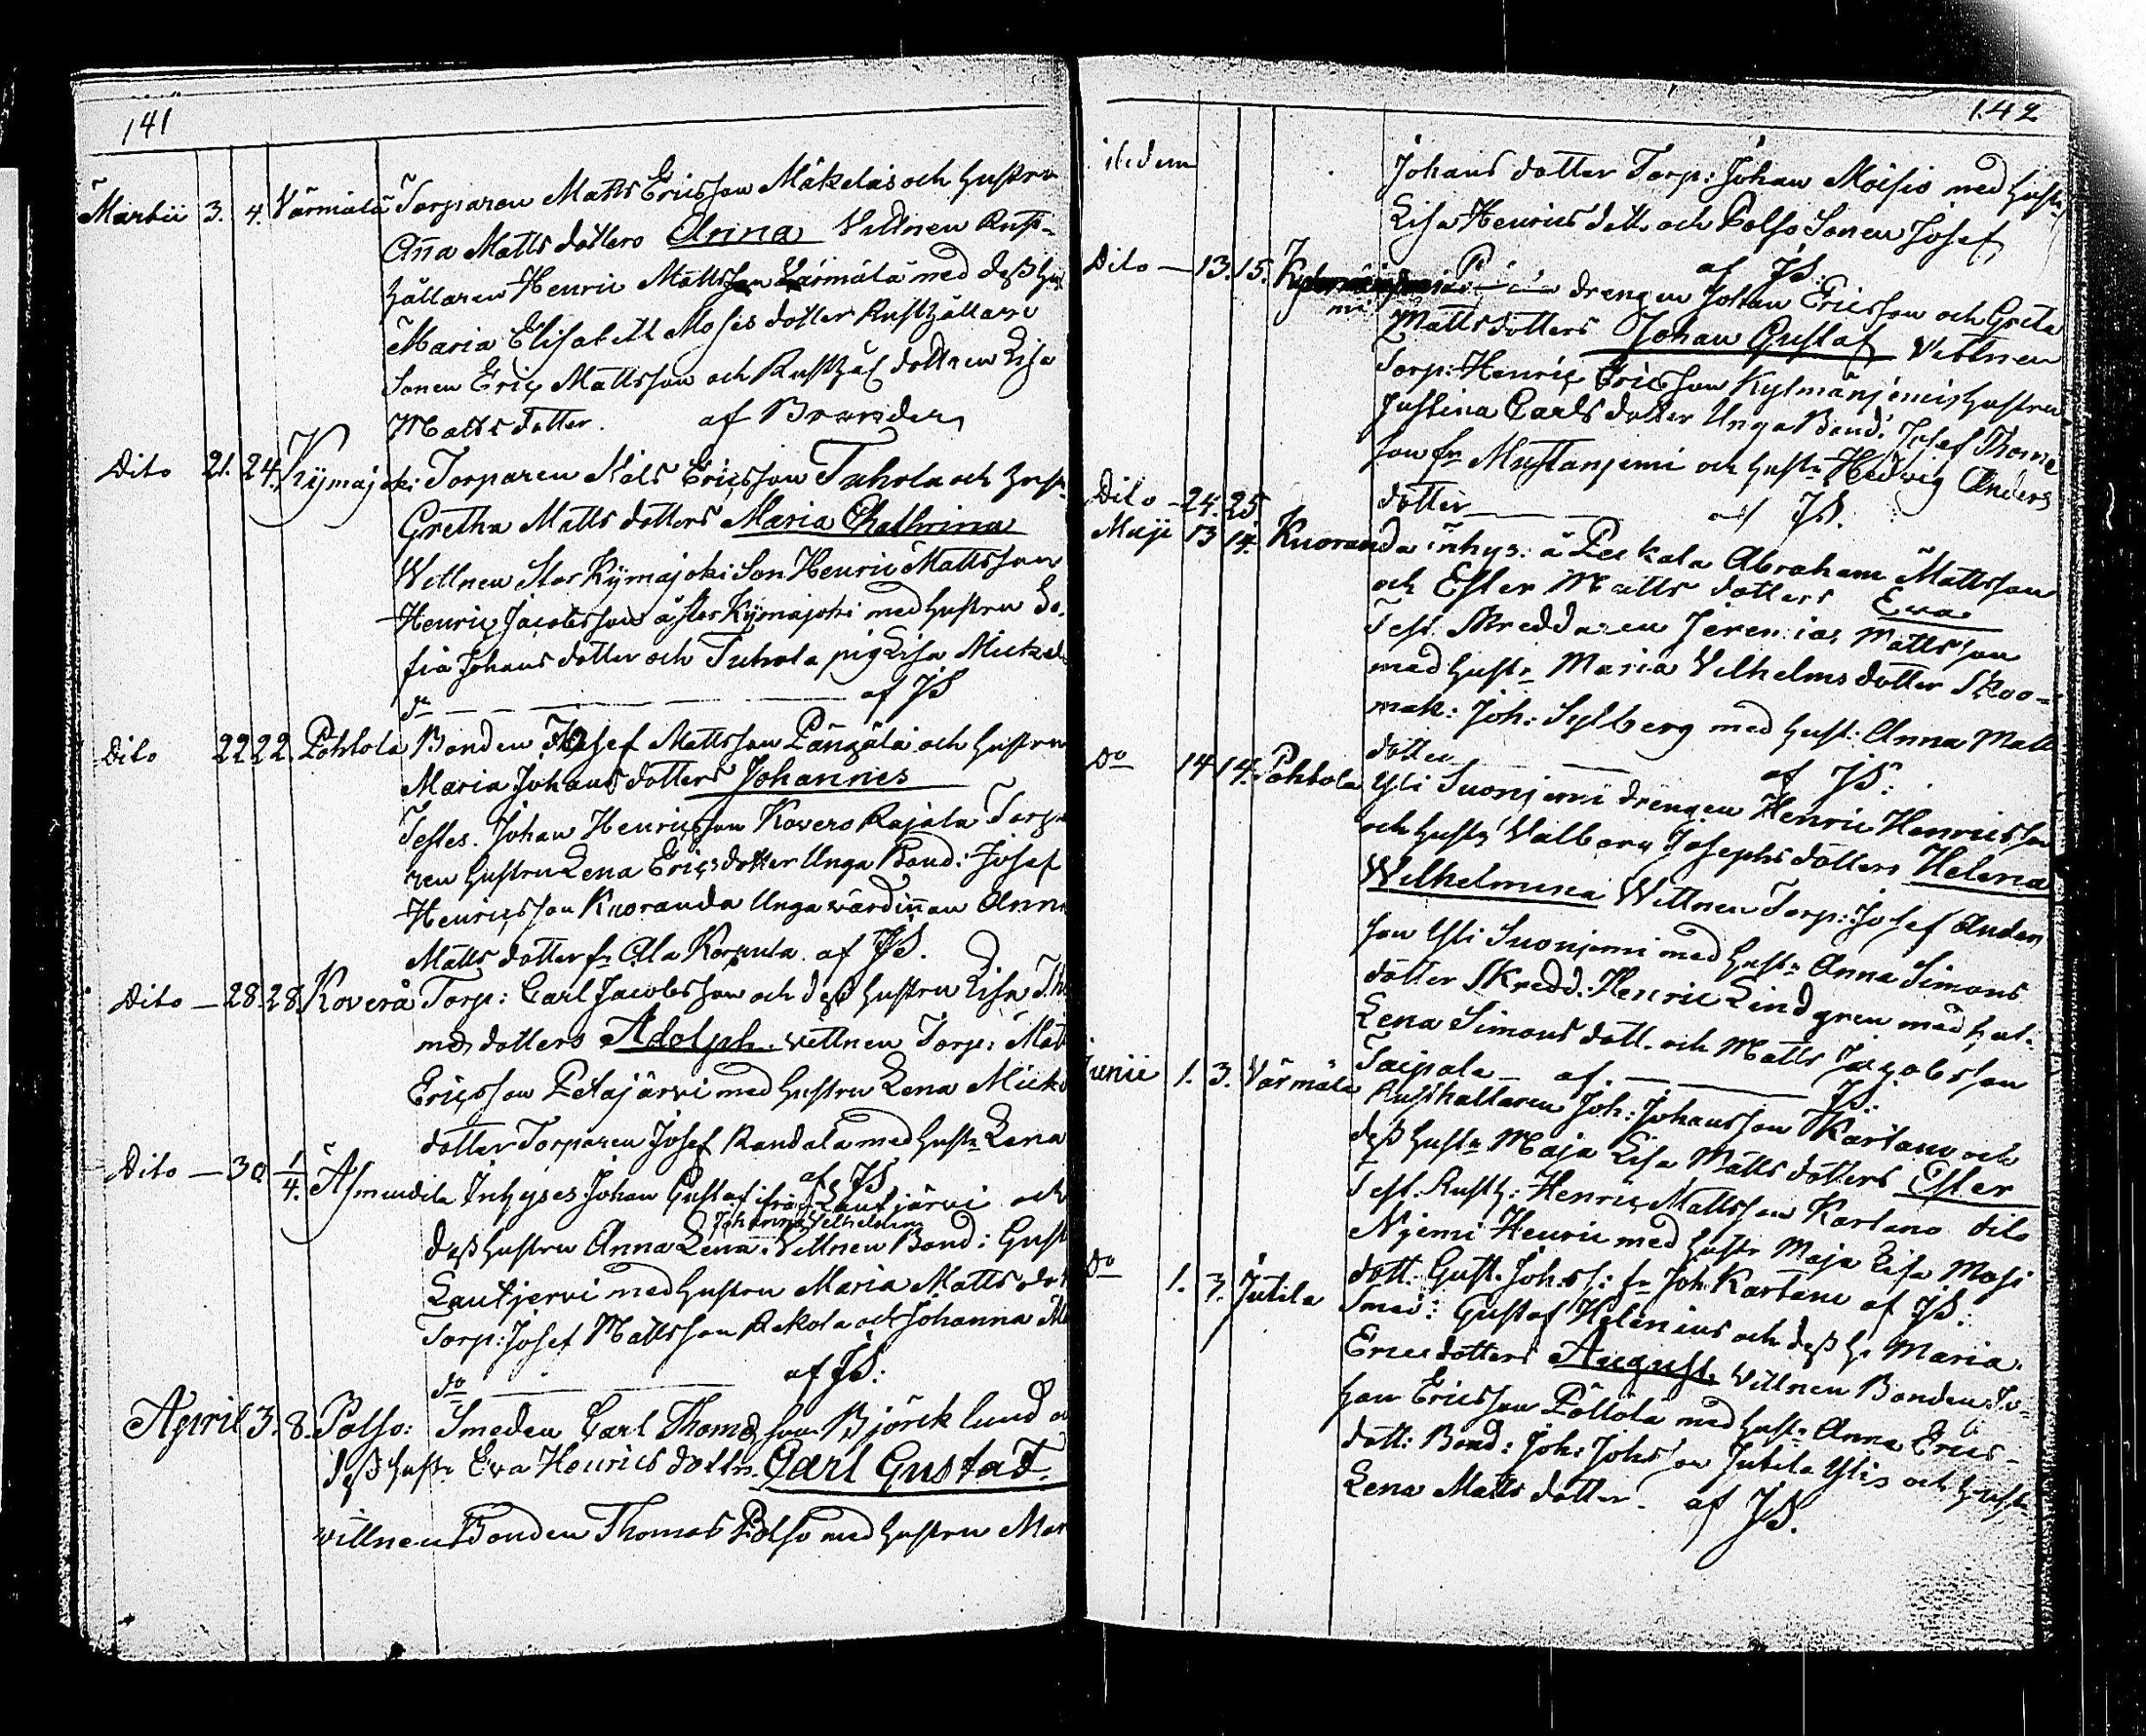 141
Martii 3. 4. Värmälä Torparen Matts Ericsson Mäkeläs och hustru
Aña Matts dotters Anna Vittnen Rust-
hållaren Henric Mattsson Värmälä med deß hu
Maria Elisabeth Moses dotter Rusthållare
Sonen Eric Mattsson och Rusth dottren Lisa
Matts dotter. af Brander
Dito 21. 24. Kymajoki Torparen Mats Ericsson Tuhola och hust
Gretha Matts dotters Maria Chathrina
Wittnen Stor Kymajoki Son Henric Mattsson
Henric Jacobsson à Stor Kymajoki med hustru So-
fia Johans dotter och Tuhola pig Lisa Mickels
dr af JS
Dito 22 22. Pohtola Bonden Josef Mattsson Pångälä och hustru
Maria Johans dotters Johannes
Testes. Johan Henricsson Kovero Rajala Torpa
ren hustru Lena Erics dotter Unga Bond: Josef
Henricsson Knoranda Unga värdiñan Anna
Matts dotter fr Ala Korpula. af JS.
Dito 28. 28. Koverå Torp: Carl Jacobsson och deß hustru Lisa Tho
mas dotters Adolph. vittnen Torp: Mat
Ericsson Petajärvi med hustru Lena Micke
dotter Torparen Josef Randala med hustr Lena
af JS
Dito 30 1/4. Asmundila Inhyses Johan Gustaf ifrån Lautjärvi och
Johanna Vilhelmina
deß hustru Anna Lena. Vittnen Bond: Gust
Lautjervi med hustru Maria Matts dot
Torp: Josef Mattsson Rekola och Johanna Ma
do af JS:
April 3. 8. Polso: Smeden Carl Thomasson Björcklund o
deß hustr Eva Henrics dottrs Carl Gustaf.
vittnen Bonden Thomas Polso med hustru Mar
142
ibidem Johans dotter Torp: Johan Moisio med hustr
Lisa Henrics dott. och Polso Sonen Josef
af JS:
Dito 13. 15. drengen Johan Ericsson och Greta
mi Mattsdotters Johan Gustaf Vittnen
Torp: Henric Ericsson Kylmänjemis hustru
Justina Carls dotter Unga Bond. Josef Thoma
son fr Mustanjemi och hustr Hedvig Anders
Dito 24. 25 dotter af JS.
Maji 13 14. Knoranda inhys: à Peckala Abraham Mattsson
och Ester Matts dotters Eva
Test. Skreddaren Jeremias Mattsson
med hustr Maria Vilhelms dotter Skoo-
mak: Joh: Sylberg med hust: Anna Matts
dotter af JS:
Do 14 14. Pohtola Yli Suonjemi drengen Henric Henricsson
och hustr Valborg Josephs dotters Helena
Wilhelmina Wittnen Torp: Josef Anders
son Yli Suonjemi med hustr Anna Simons
dotter Skredd. Henric Lindgren med hust.
Lena Simons dott. och Matts Jacobsson
Taipale af JS:
Junii 1. 3. Värmälä Rusthallaren Joh: Johansson Kartano och
deß hustr Maja Lisa Matts dotters Ester
Test. Rusth: Henric Mattsson Kartano dito
Njemi Henric med hustr Maja Lisa Mosi
dott: Gust. Johss: fr Joh. Kartano af JS:
Do 1. 3. Jutila Smed: Gustaf Helenius och deß h. Maria
Erics dotters August. Vittnen Bonden Jo-
han Ericsson Pöllölä med hustr Anna Erics-
dott: Bond: Joh: Johsson Jutila Ylis och hustr
Lena Matts dotter. af JS.